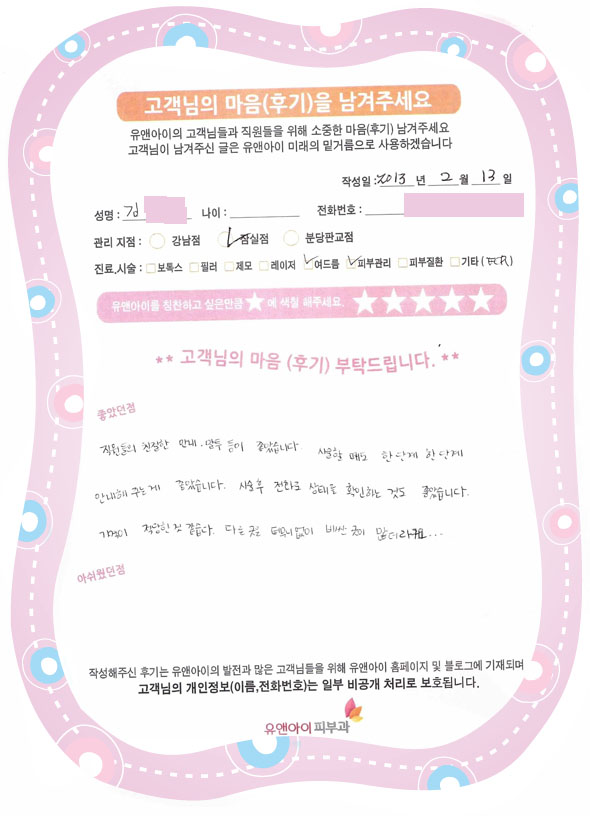 고객님의 마음(후기)을 남겨주세요
유앤아이의 고객님들과 직원들을 위해 소중한 마음(후기) 남겨주세요
고객님이 남겨주신 글은 유앤아이 미래의 밑거름으로 사용하겠습니다
작성일 : 2013 년 2 월 13 일
성명 : 김 나이 : 전화번호 :
관리 지점 : 강남점 잠실점 분당판교점
진료,시술 : 보톡스 필러 제모 레이저 여드름 피부관리 피부질환 기타 (
유앤아이를 칭찬하고 싶은만큼 ★ 에 색칠 해주세요. ★★★★★
** 고객님의 마음 (후기) 부탁드립니다. **
좋았던점
직원들의 친절한 안내·말투 등이 좋았습니다 시술할 때도 한단계 한단계
안내해 주는게 좋았습니다. 시술후 전화로 상태를 확인하는 것도 좋았습니다.
가격이 적당한 것 같습다. 다른 곳은 터무니없이 비싼 곳이 많더라구요...
아쉬웠던점
작성해주신 후기는 유앤아이의 발전과 많은 고객님들을 위해 유앤아이 홈페이지 및 블로그에 기재되며
고객님의 개인정보(이름,전화번호)는 일부 비공개 처리로 보호됩니다.
유앤아이피부과